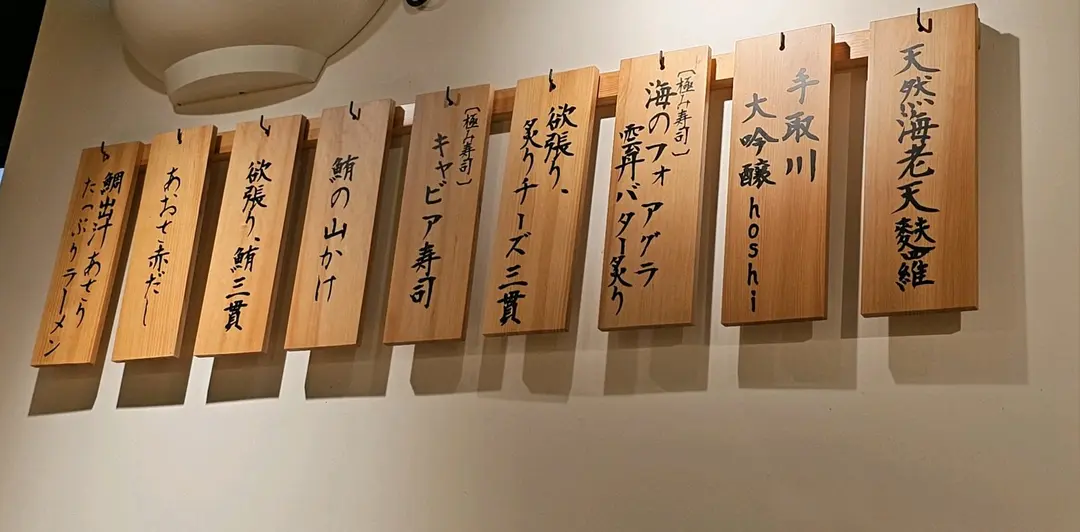 天然海老天麩羅
手取川
大吟醸hoshi
〔極み寿司〕
海のフォアグラ
雲丹バター炙り
欲張り、
炙りチーズ三貫
〔極み寿司〕
キャビア寿司
鮪の山かけ
欲張り、鮪三貫
あおさ赤だし
鯛出汁あさり
たっぷりラーメン